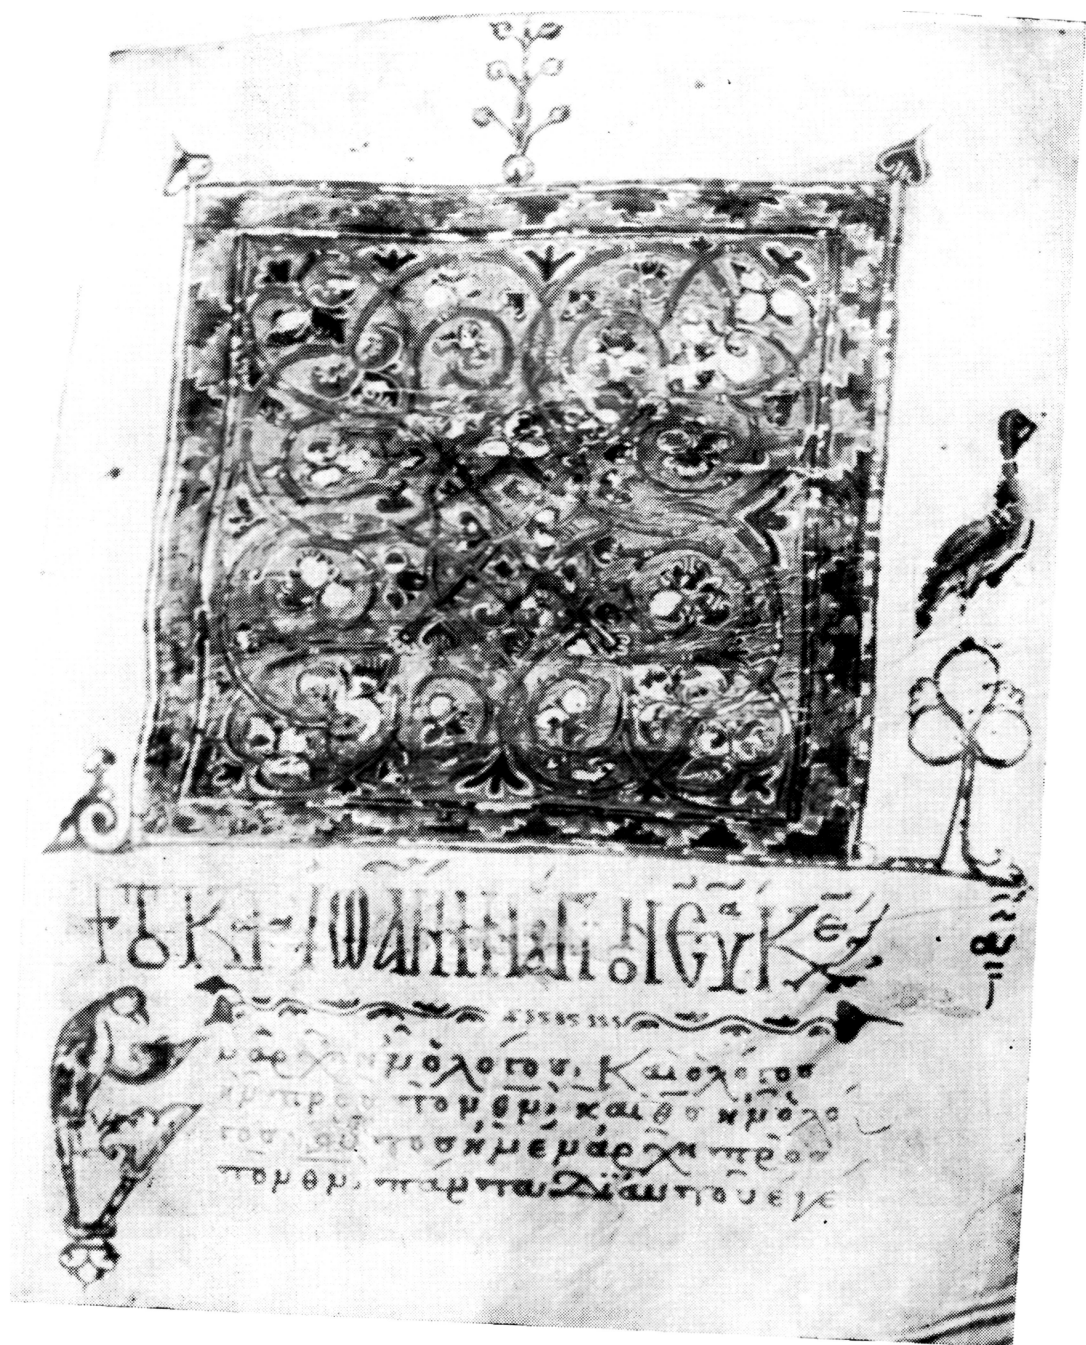 + Τὸ κτ Ἰωάννην ἅγιον εὐα κε
ν ἀρχῆ ἦν ὁ λόγος, καὶ ὁ λόγος
ἦν πρὸς τὸν θν· καὶ θς ἦν ὁ λό
γος· οὗτος ἦν ἐν ἀρχῆ πρὸς
τὸν θν· πάντα δι αυτοῦ ἐγε